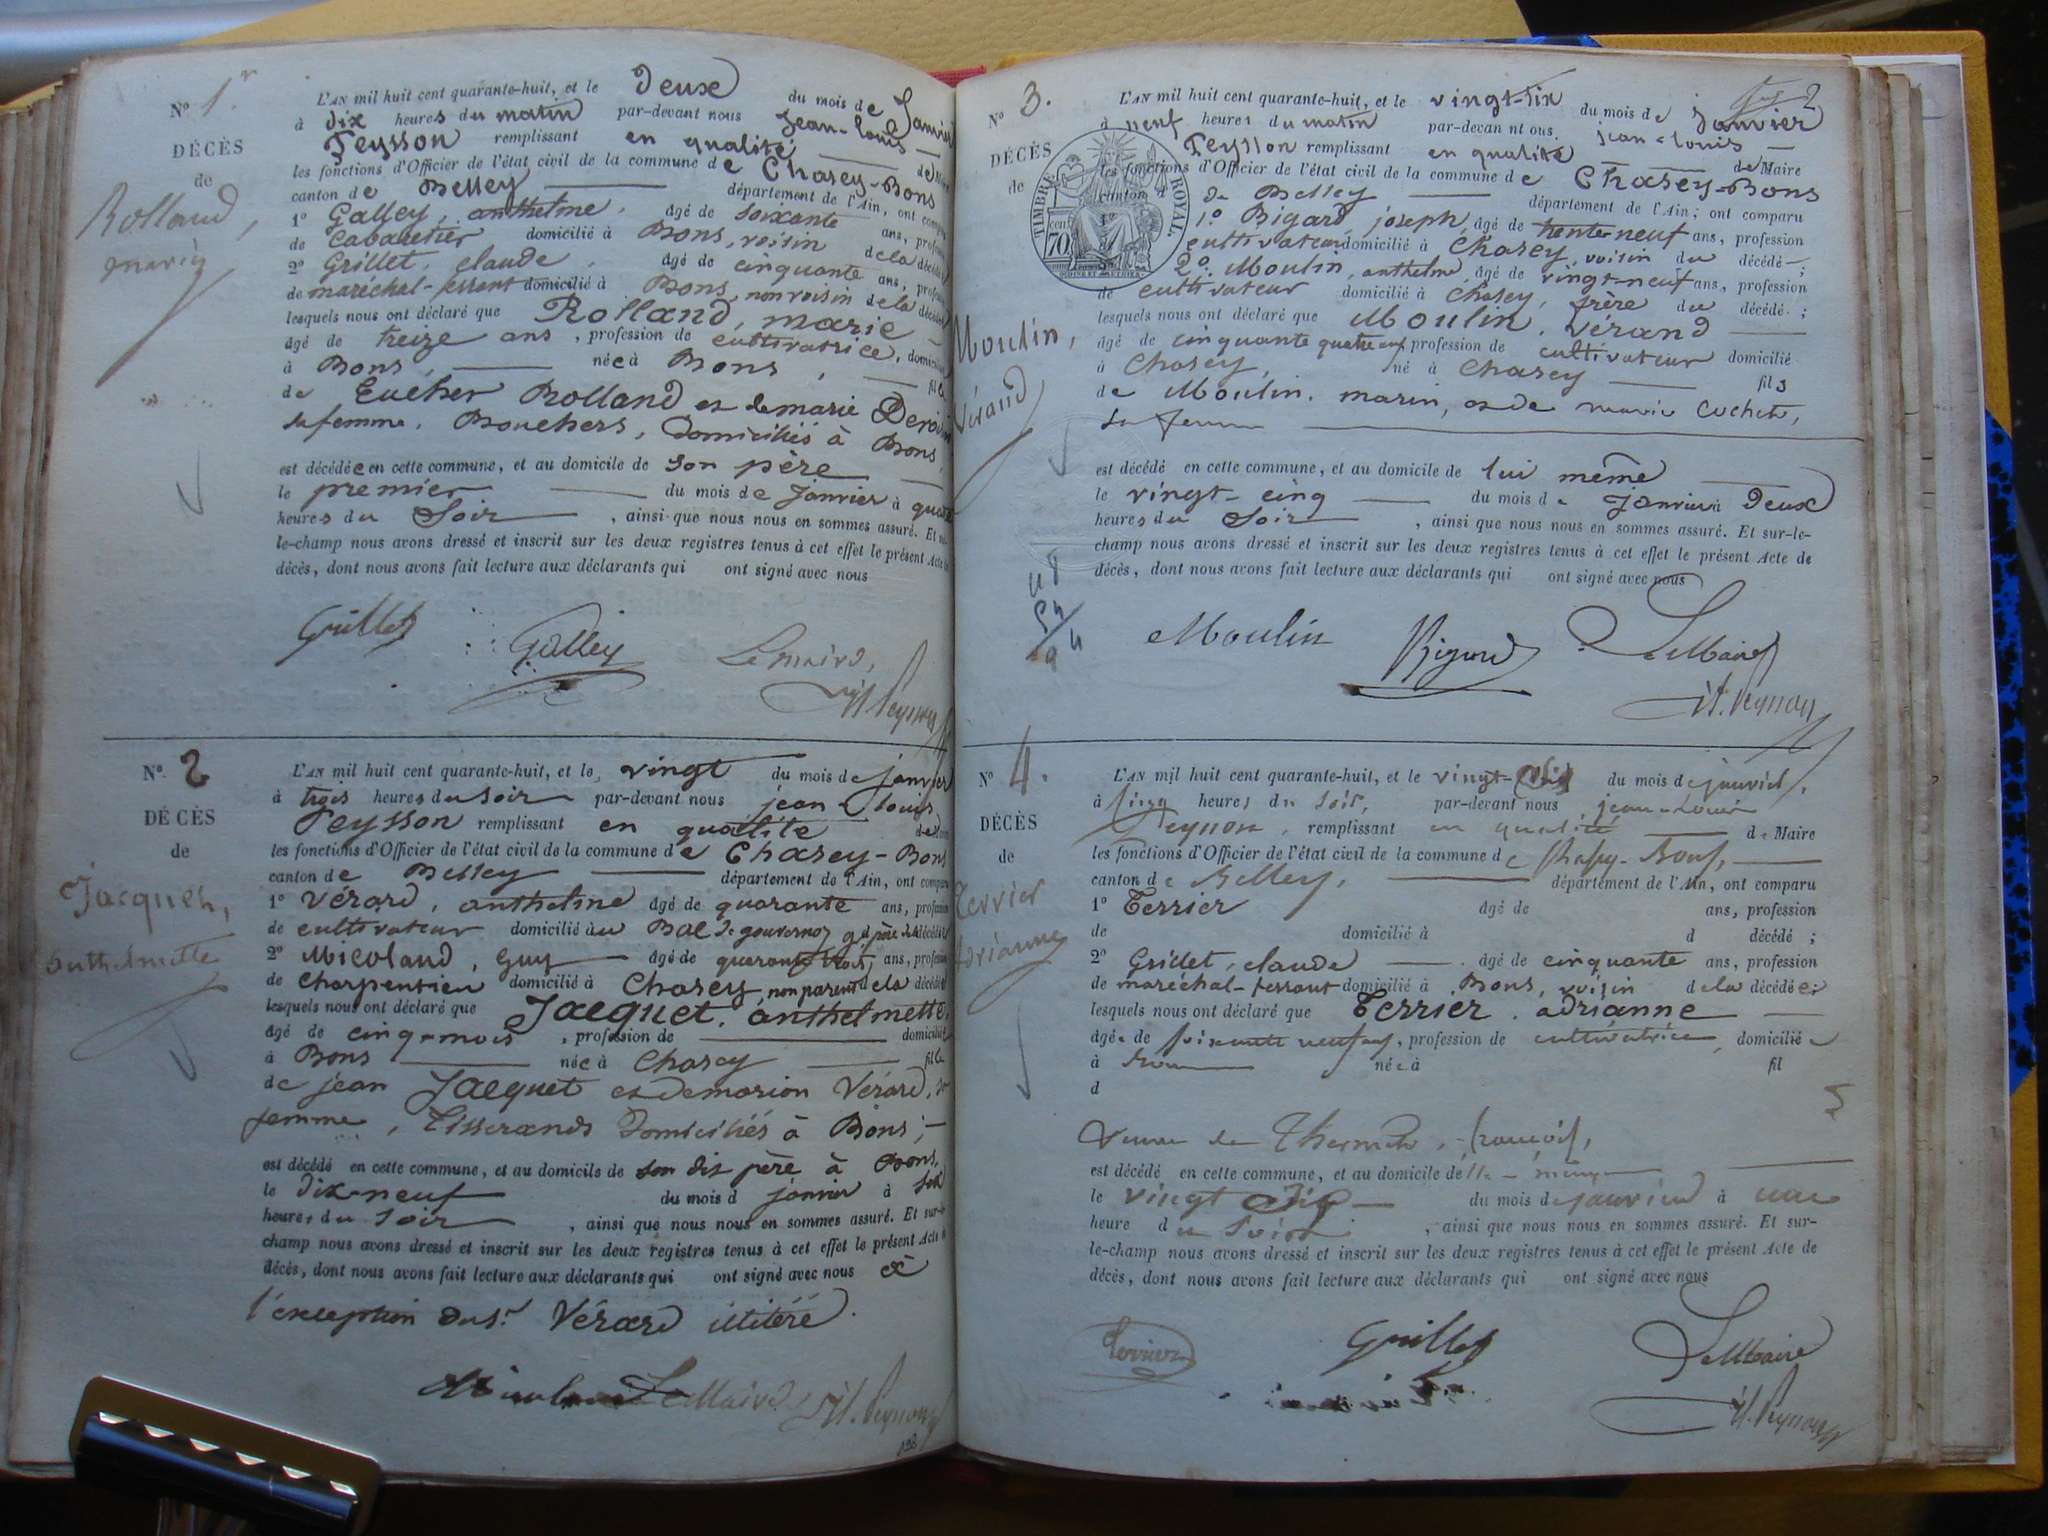 N° 1.r
DÉCÈS
de
Rolland,
marie
L'AN mil huit cent quarante-huit, et le Deux du mois de Janvier
à Dix heures du matin par-devant nous Jean-Louis
Peysson remplissant en qualité de
les fonctions d'Officier de l'état civil de la commune de Chasey-Bons
canton de Belley département de l'Ain, ont
1° Galley, anthelme, âgé de soixante ans,
de Cabaretier domicilié à Bons, voisin de la
2° Grillet, claude, âgé de cinquante ans,
de maréchal-ferrant domicilié à Bons, non voisin de la
lesquels nous ont déclaré que Rolland, marie
âgé de treize ans, profession de cultivatrice,
à Bons, née à Bons, fille
de Eucher Rolland et de marie
sa femme, Bouchers, domiciliés à Bons,
est décédée en cette commune, et au domicile de son père
le premier du mois de Janvier à
heures du Soir, ainsi que nous nous en sommes assuré. Et
le-champ nous avons dressé et inscrit sur les deux registres tenus à cet effet le présent Acte de
décès, dont nous avons fait lecture aux déclarants qui ont signé avec nous
Grillet Galley Le maire,
Peysson
N° 2
DÉCÈS
de
Jacquet,
anthelmette
L'AN mil huit cent quarante-huit, et le vingt du mois de janvier
à trois heures du soir par-devant nous jean-Louis
Peysson remplissant en qualité de
les fonctions d'Officier de l'état civil de la commune de Chasey-Bons
canton de Belley département de l'Ain, ont comparu
1° Vérard, anthelme âgé de quarante ans, profession
de cultivateur domicilié au de gd père de la
2° Micoland, Guy âgé de quarante trois, ans,
de Charpentier domicilié à Chasey, non parent de la
lesquels nous ont déclaré que Jacquet, anthelmette,
âgé de cinq-mois, profession de domicilié
à Bons née à Chasey fille
de jean Jacquet et de marion Vérard, sa
femme, Tisserands domiciliés à Bons;
est décédé en cette commune, et au domicile de son dit père à Bons,
le dix-neuf du mois d janvier à
heures du soir, ainsi que nous nous en sommes assuré. Et sur-le
champ nous avons dressé et inscrit sur les deux registres tenus à cet effet le présent Acte de
décès, dont nous avons fait lecture aux déclarants qui ont signé avec nous à
l'exception du sr. Vérard illitéré.
Le Maire Peysson
198
N° 3.
DÉCÈS
de
Moulin,
Vérand
2
TIMBRE ROYAL.
70
L'AN mil huit cent quarante-huit, et le vingt-six du mois de Janvier
à neuf heures du matin par-devant nous jean-louis
Peysson remplissant en qualité de Maire
les fonctions d'Officier de l'état civil de la commune de Chasey-Bons
canton de Belley département de l'Ain; ont comparu
1° Bigard, joseph, âgé de trente-neuf ans, profession
cultivateur domicilié à Chasey, voisin du décédé;
2° Moulin, anthelme, âgé de vingt-neuf ans, profession
de cultivateur domicilié à Chasey, frère du décédé;
lesquels nous ont déclaré que Moulin, Vérand
âgé de cinquante quatre ans, profession de cultivateur domicilié
à Chasey, né à Chasey fils
de Moulin, marin, et de marie Cochet,
sa femme
est décédé en cette commune, et au domicile de lui même
le vingt-cinq du mois de Janvier à Deux
heures du Soir, ainsi que nous nous en sommes assuré. Et sur-le-
champ nous avons dressé et inscrit sur les deux registres tenus à cet effet le présent Acte de
décès, dont nous avons fait lecture aux déclarants qui ont signé avec nous
Moulin Bigard Le Maire
Peysson
N° 4.
DÉCÈS
de
Terrier
Adrianne
L'AN mil huit cent quarante-huit, et le vingt- du mois de janvier,
à cinq heures du soir, par-devant nous jean-Louis
Peysson, remplissant en qualité de Maire
les fonctions d'Officier de l'état civil de la commune de Chasey-Bons,
canton de Belley, département de l'Ain, ont comparu
1° Terrier âgé de ans, profession
de domicilié à d décédé;
2° Grillet, claude âgé de cinquante ans, profession
de maréchal-ferrant domicilié à Bons, voisin de la décédée;
lesquels nous ont déclaré que Terrier, adrianne
âgée de soixante neuf ans, profession de cultivatrice, domiciliée
à Bons née à fil
d
Veuve de Thermet, françois,
est décédé en cette commune, et au domicile de elle-même
le vingt du mois de janvier à une
heure du soir, ainsi que nous nous en sommes assuré. Et sur-
le-champ nous avons dressé et inscrit sur les deux registres tenus à cet effet le présent Acte de
décès, dont nous avons fait lecture aux déclarants qui ont signé avec nous
Terrier Grillet Le Maire
Peysson